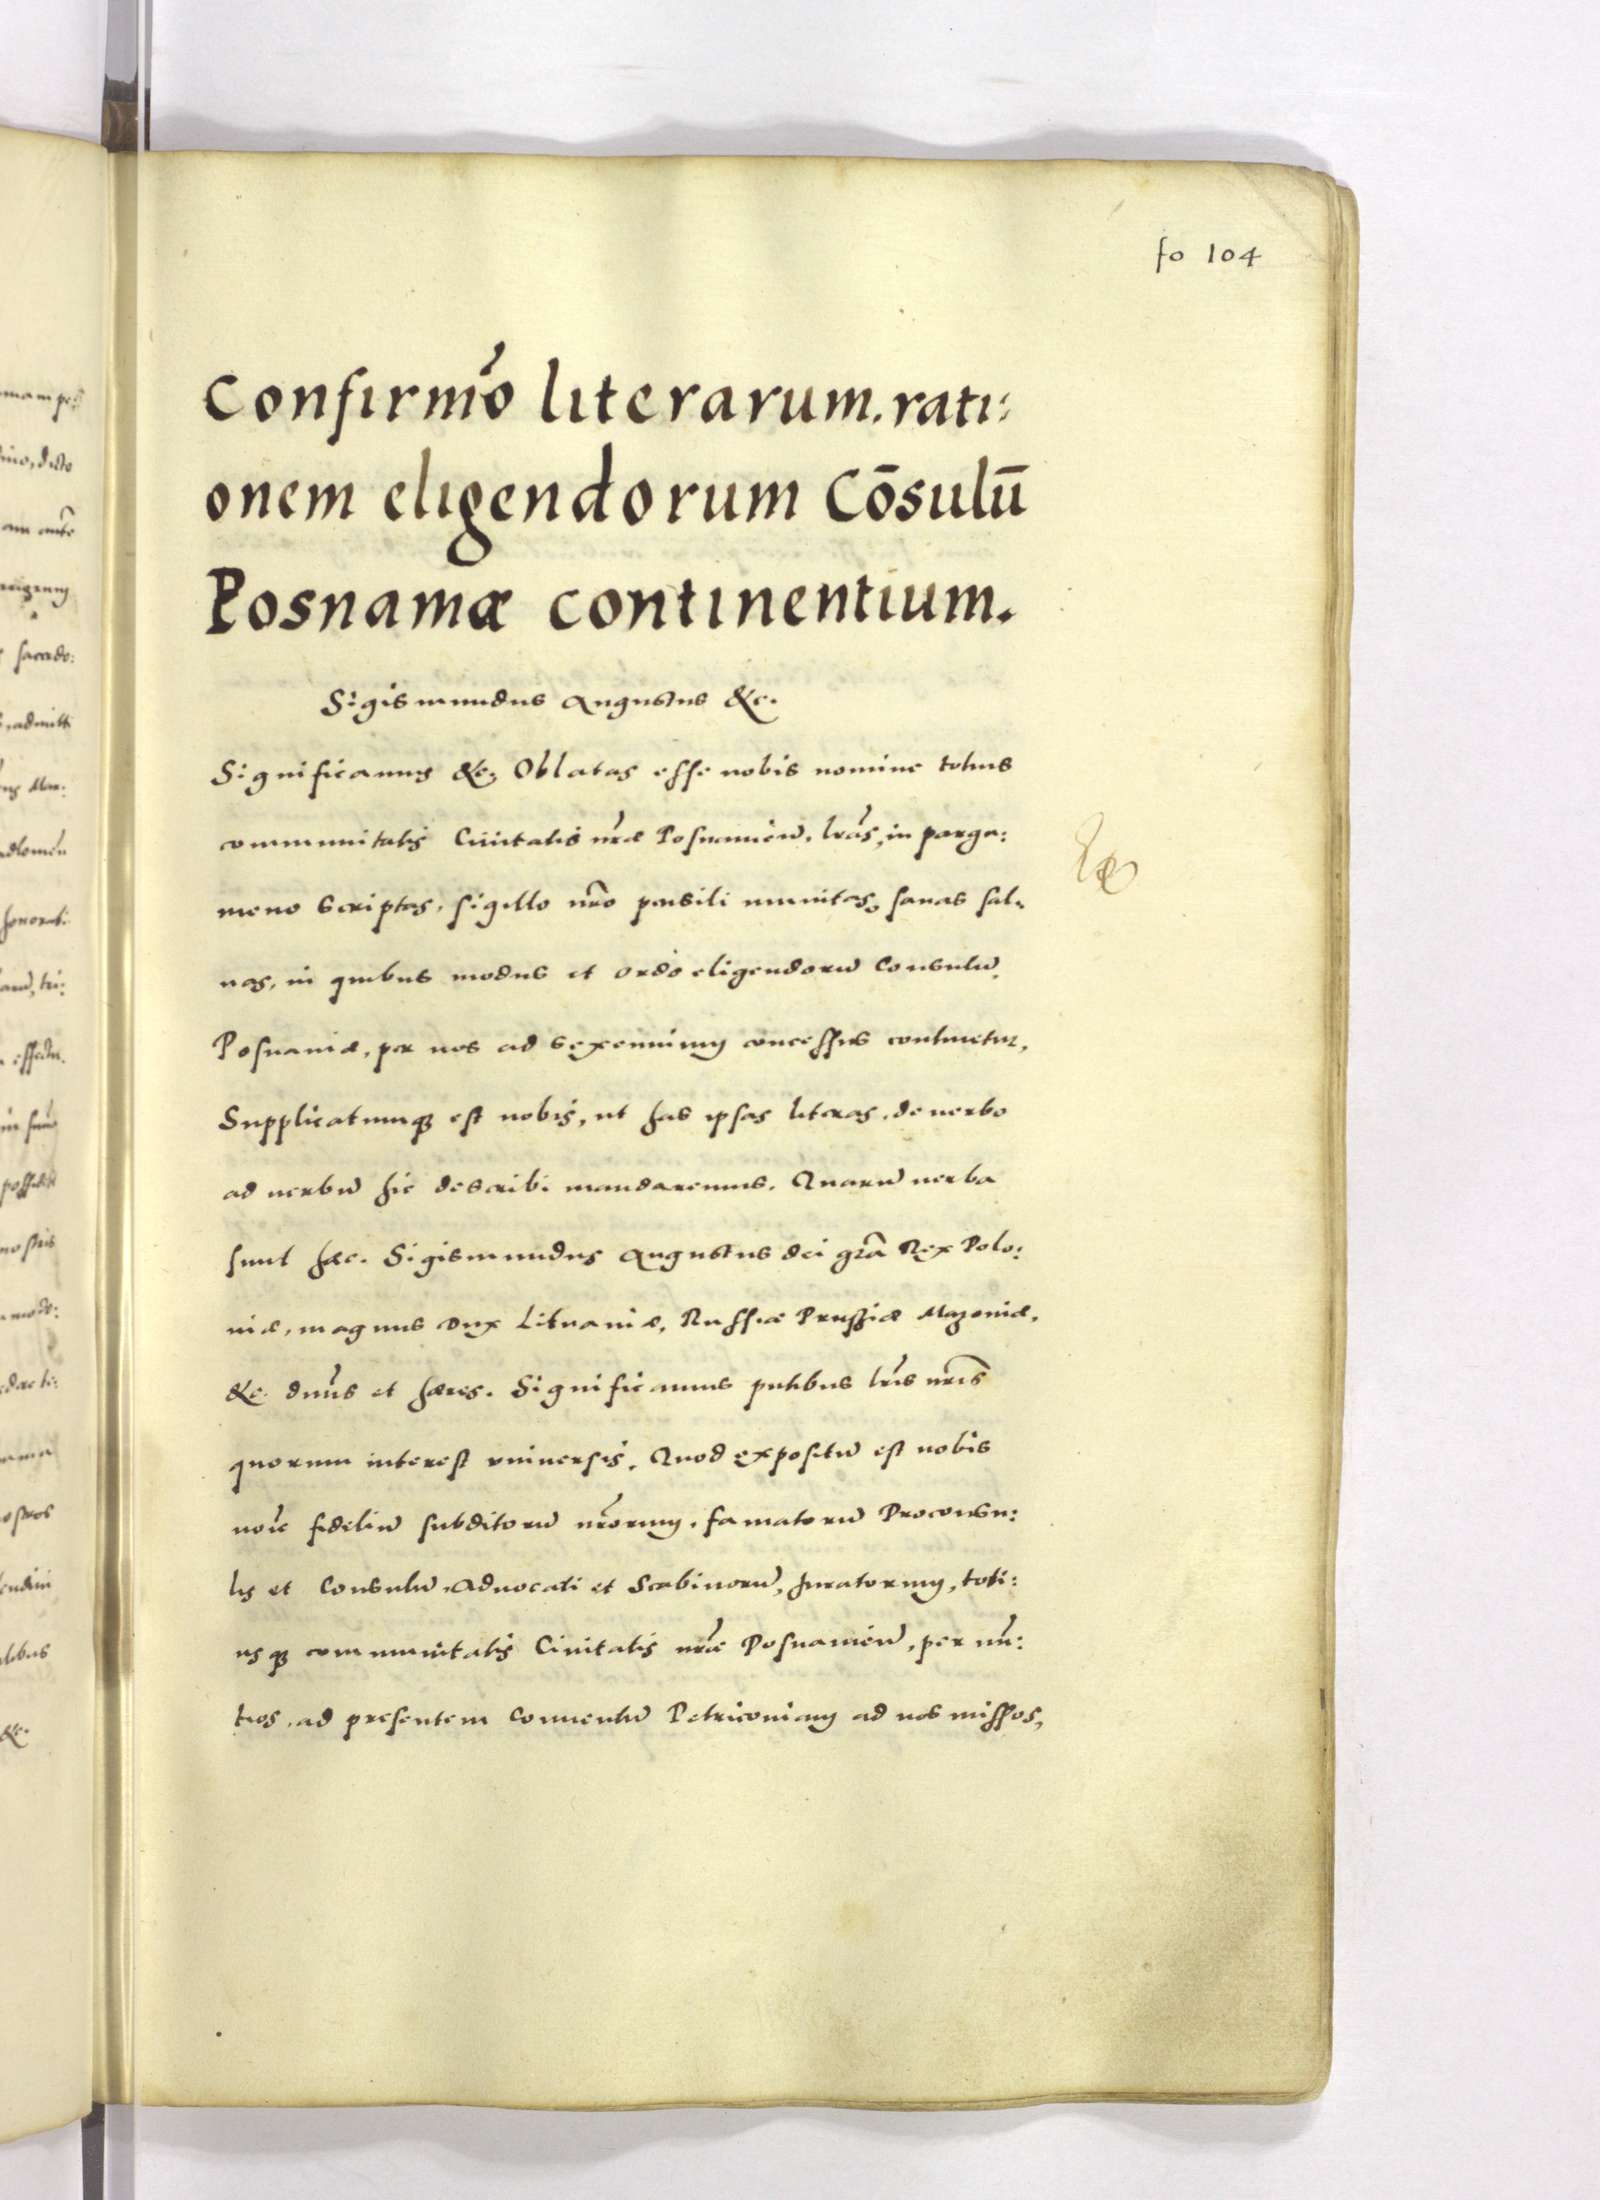 fo 104
Confirmo literarum. rati:
onem eligendorum Cōsulū
Posnaniæ continentium.
Sigismundus Augustus &c.
Significamus &c. Oblatas esse nobis nomine totius
communitatis Ciuitatis nr̄æ Posnanien̄. lr̄as, in parga:
meno scriptas, sigillo nr̄o pensili munitas, sanas sal:
uas, in quibus modus et ordo eligendorū Consulū,
Posnaniæ, per nos ad sexennium concessus continetur,
Supplicatumq; est nobis, ut has ipsas literas, de uerbo
ad uerbū hic describi mandaremus. Quarū uerba
sunt hæc. Sigismundus Augustus dei gr̄a Rex Polo:
niæ, magnus Dux Lituaniæ, Russiæ Prussiæ Mazouiæ,
&c. dn̄us et hæres. Significamus pn̄tibus lr̄is nr̄is
quorum interest uniuersis, Quod expositū est nobis
noīe fideliū subditorū nr̄orum, famatorū Proconsu:
lis et Consulū, Aduocati et Scabinorū, Juratorum, toti:
usq; communitatis Ciuitatis nr̄æ Posnanien̄, per nū:
tios, ad presentem conuentū Petricouiam ad nos missos,
mam
dicto
sacerdo:
, admitti
Mar:
honorab:
effectu.
nostris
modo:
&c.